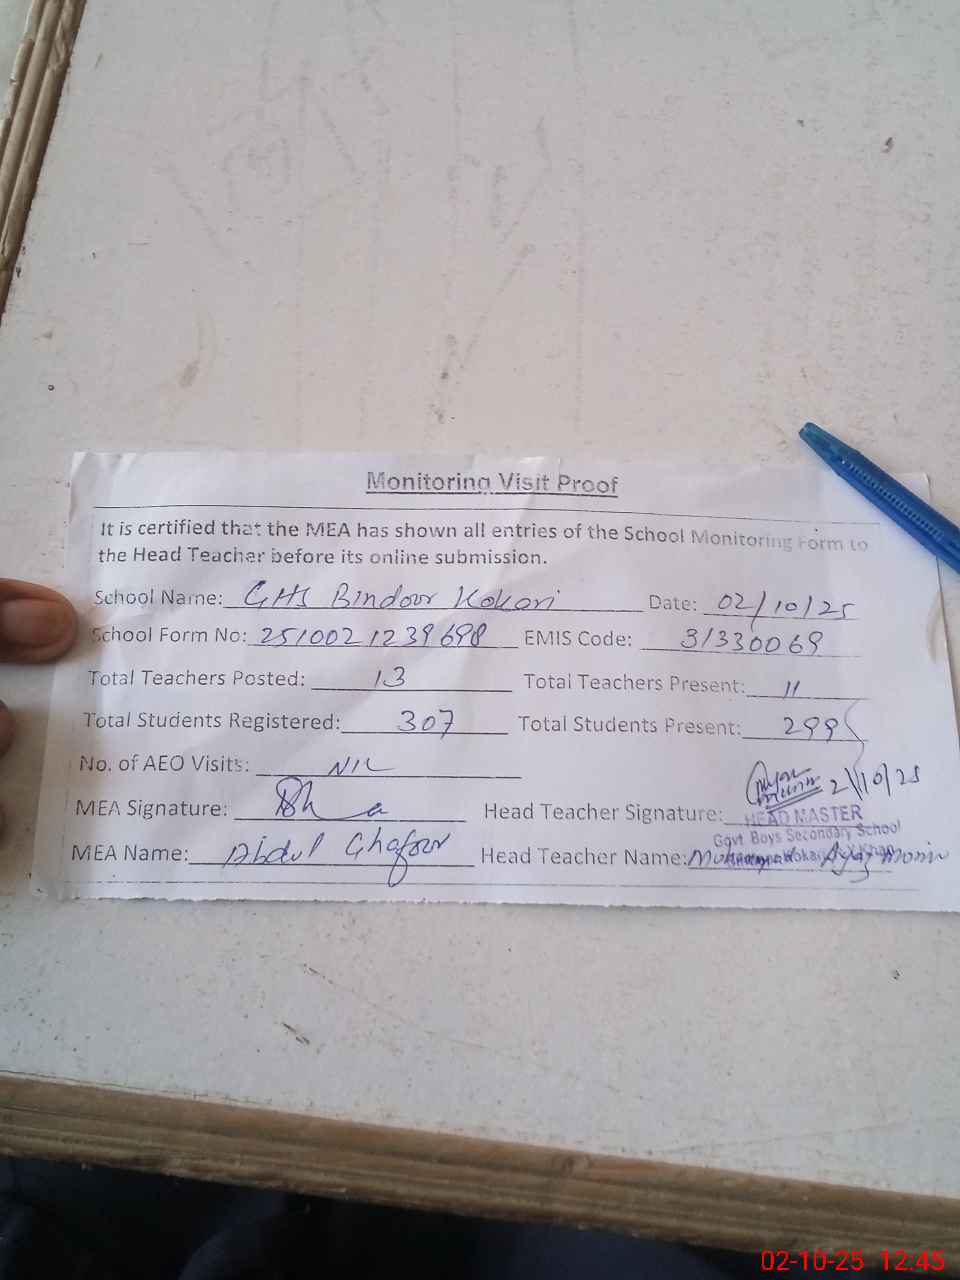 Monitoring Visit Proof
It is certified that the MEA has shown all entries of the School Monitoring Form to
the Head Teacher before its online submission.
School Name: GHS Bindoor Kokari Date: 02/10/25
School Form No: 2510021239698 EMIS Code: 31330069
Total Teachers Posted: 13 Total Teachers Present: 11
Total Students Registered: 307 Total Students Present: 299
No. of AEO Visits: NIL
MEA Signature: Head Teacher Signature: 2/10/25
HEAD MASTER
Govt. Boys Secondary School
MEA Name: Abdul Ghafoor Head Teacher Name:
02-10-25 12:45